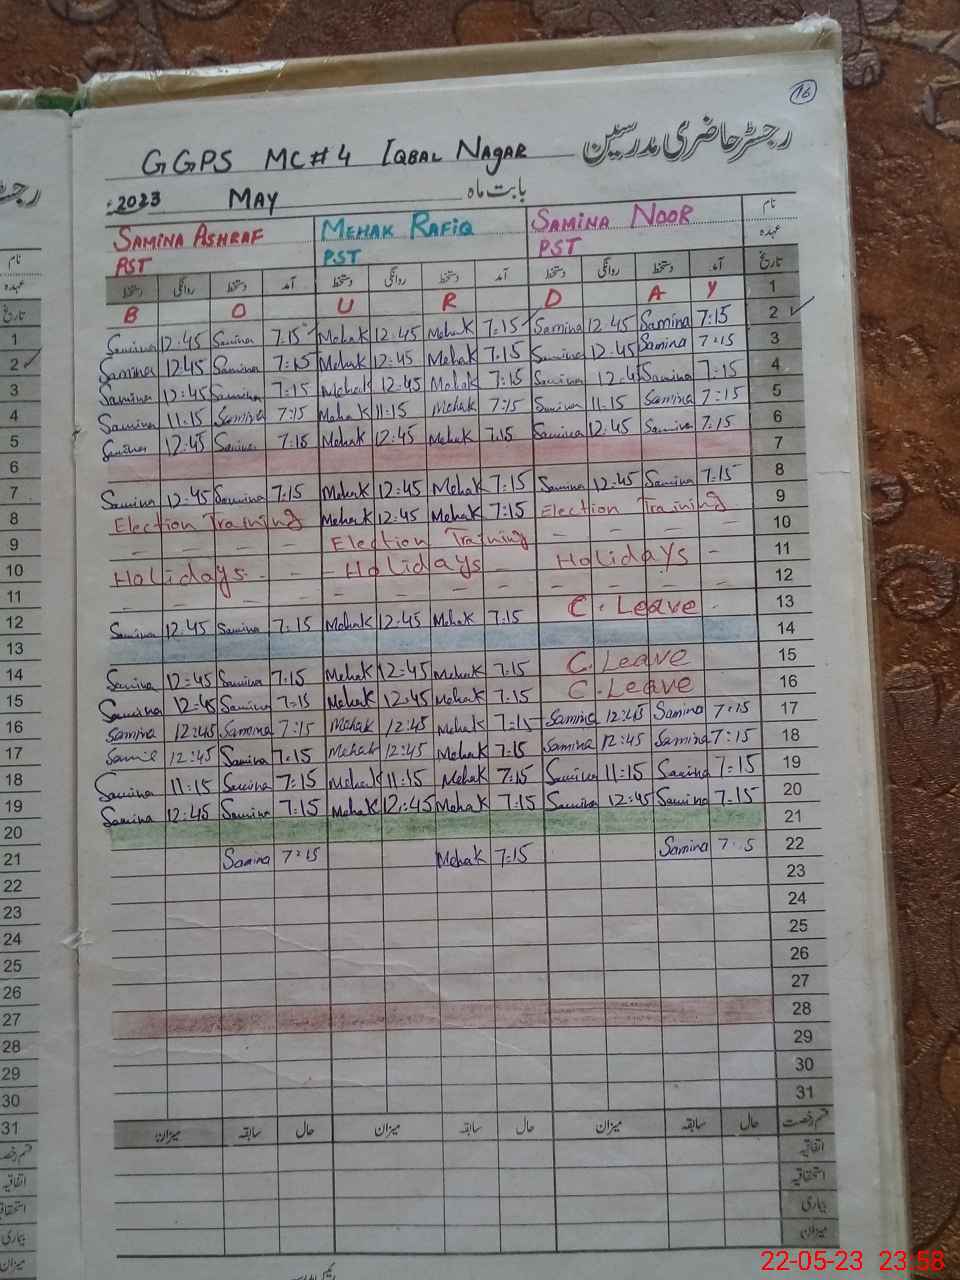 16
رجسٹر حاضری مدرسین
GGPS MC#4 IQBAL NAGAR
2023 MAY بابت ماہ
SAMINA ASHRAF MEHAK RAFIQ SAMINA NOOR نام
PST PST PST عہدہ
دستخط روانگی دستخط آمد دستخط روانگی دستخط آمد دستخط روانگی دستخط آمد تاریخ
B O U R D A Y 1
Samina 12:45 Samina 7:15 Mehak 12:45 Mehak 7:15 Samina 12:45 Samina 7:15 2
Samina 12:45 Samina 7:15 Mehak 12:45 Mehak 7:15 Samina 12:45 Samina 7:15 3
Samina 12:45 Samina 7:15 Mehak 12:45 Mehak 7:15 Samina 12:45 Samina 7:15 4
Samina 11:15 Samina 7:15 Mehak 11:15 Mehak 7:15 Samina 11:15 Samina 7:15 5
Samina 12:45 Samina 7:15 Mehak 12:45 Mehak 7:15 Samina 12:45 Samina 7:15 6
7
Samina 12:45 Samina 7:15 Mehak 12:45 Mehak 7:15 Samina 12:45 Samina 7:15 8
Election Training Mehak 12:45 Mehak 7:15 Election Training 9
Election Training 10
Holidays Holidays Holidays 11
12
Samina 12:45 Samina 7:15 Mehak 12:45 Mehak 7:15 C. Leave 13
14
Samina 12:45 Samina 7:15 Mehak 12:45 Mehak 7:15 C. Leave 15
Samina 12:45 Samina 7:15 Mehak 12:45 Mehak 7:15 C. Leave 16
Samina 12:45 Samina 7:15 Mehak 12:45 Mehak 7:15 Samina 12:45 Samina 7:15 17
Samina 12:45 Samina 7:15 Mehak 12:45 Mehak 7:15 Samina 12:45 Samina 7:15 18
Samina 11:15 Samina 7:15 Mehak 11:15 Mehak 7:15 Samina 11:15 Samina 7:15 19
Samina 12:45 Samina 7:15 Mehak 12:45 Mehak 7:15 Samina 12:45 Samina 7:15 20
21
Samina 7:15 Mehak 7:15 Samina 7:15 22
23
24
25
26
27
28
29
30
31
میزان سابقہ حال میزان سابقہ حال میزان سابقہ حال قسم رخصت
اتفاقیہ
استحقاقیہ
بیماری
میزان
نام
عہدہ
تاریخ
1
2
3
4
5
6
7
8
9
10
11
12
13
14
15
16
17
18
19
20
21
22
23
24
25
26
27
28
29
30
31
22-05-23 23:58